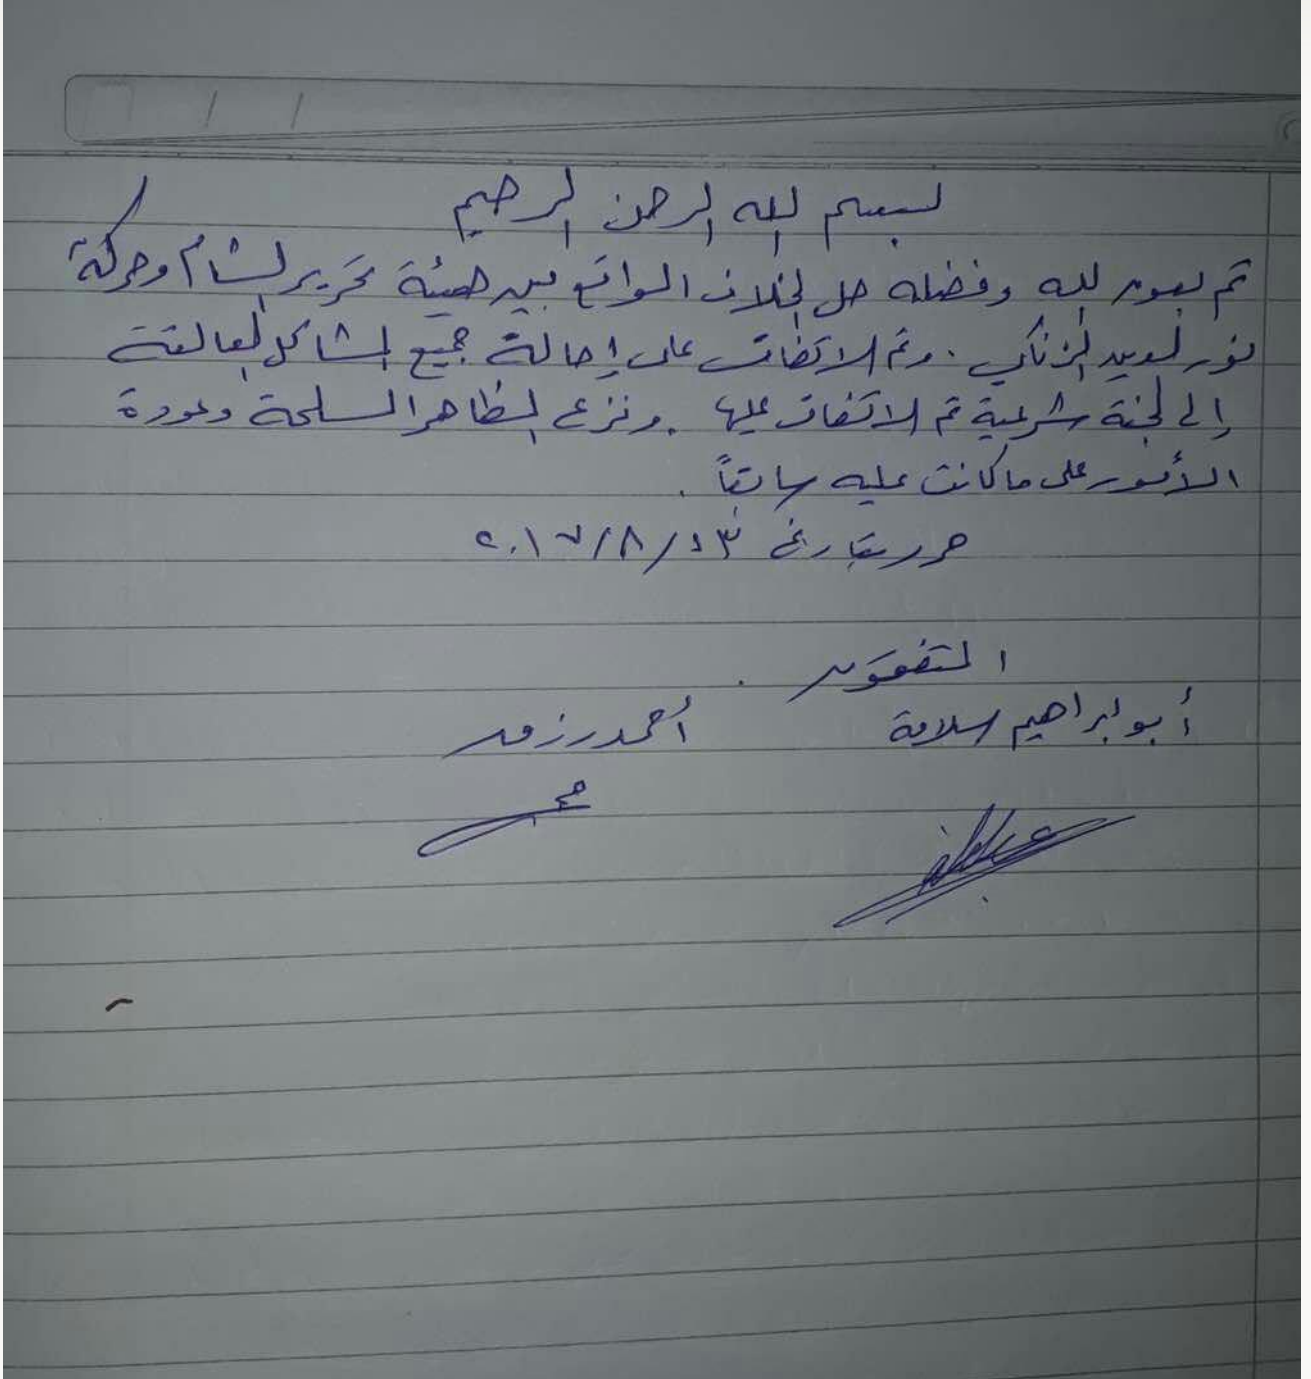 بسم الله الرحمن الرحيم
تم بعون الله وفضله حل الخلاف الواقع بين هيئة تحرير الشام وحركة
نور الدين الزنكي . وتم الاتفاق على إحالة جميع المشاكل العالقة
إلى لجنة شرعية تم الاتفاق عليها . ونزع المظاهر المسلحة وعودة
الأمور على ما كانت عليه سابقاً .
حرر بتاريخ /٨/٢٠١٧
المتفقون .
أبو إبراهيم سلامة أحمد رزق